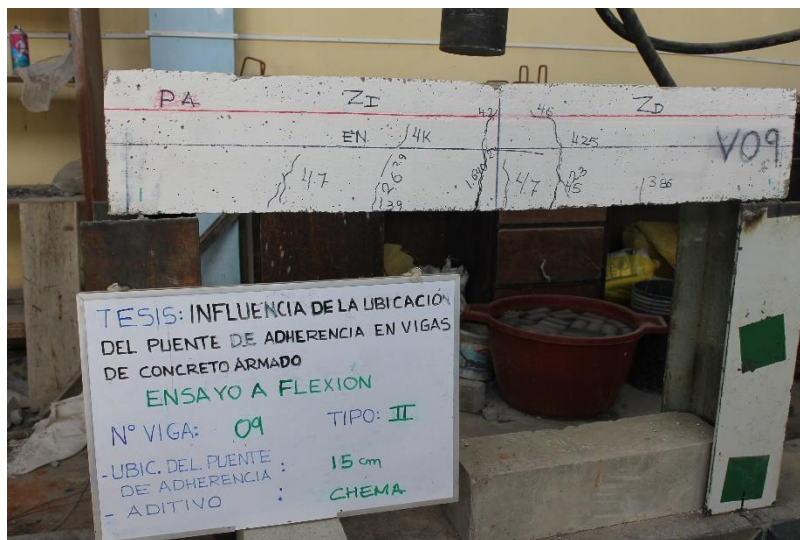 PA ZI ZD
42 46
EN 4K 425 V09
47 47 45 386
139
TESIS: INFLUENCIA DE LA UBICACIÓN
DEL PUENTE DE ADHERENCIA EN VIGAS
DE CONCRETO ARMADO
ENSAYO A FLEXIÓN
N° VIGA: 09 TIPO: II
-UBIC. DEL PUENTE : 15 cm
DE ADHERENCIA
- ADITIVO : CHEMA